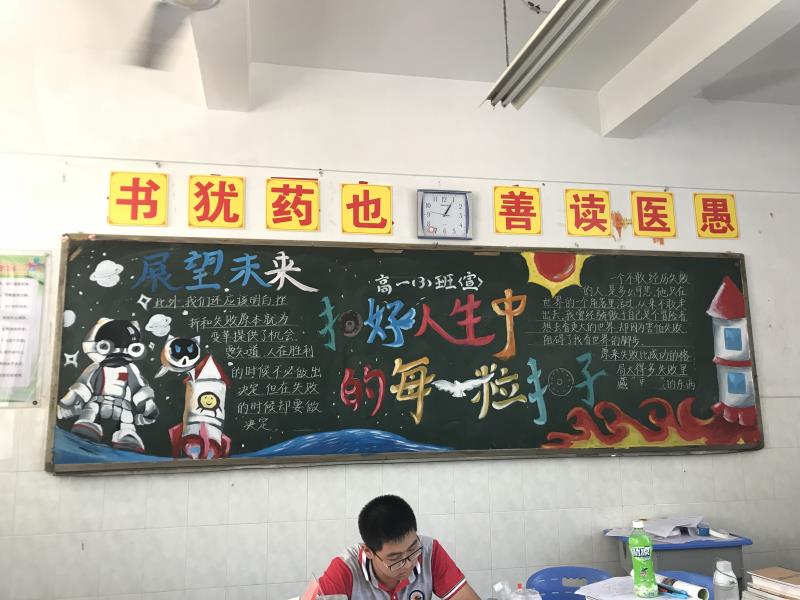 书犹药也 善读医愚
展望未来
此外,我们还应该明白挫
折和失败原本就为
变革提供了机会,
要知道,人在胜利
的时候不必做出
决定,但在失败
的时候却要做
决定。
高一(3)班〈宣〉
扣好人生中
的每一粒扣子
一个不敢经历失败
的人是多么可悲,他只在
世界的一个角落里活动,从来不敢走
出去,我曾经骑做于自己是个冒险者
想去看更大的世界,却因为害怕失败
阻碍了我看世界的脚步。
原来失败比成功的格
局大得多,失败里
的东西